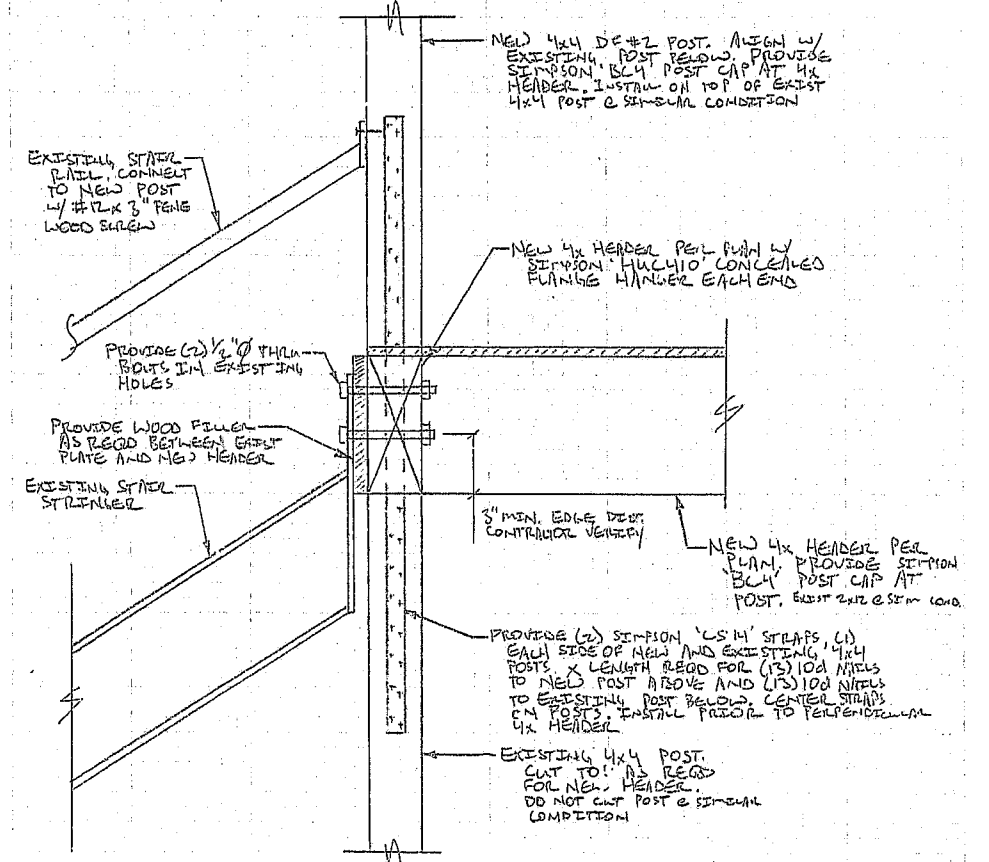 NEW 4x4 DF #2 POST. ALIGN W/
EXISTING POST BELOW. PROVIDE
SIMPSON 'BC4' POST CAP AT 4x
HEADER. INSTALL ON TOP OF EXIST
4x4 POST @ SIMILAR CONDITION
EXISTING STAIR
RAIL. CONNECT
TO NEW POST
W/ #12 x 3"
WOOD SCREW
NEW 4x HEADER PER PLAN W/
SIMPSON 'HUC410' CONCEALED
FLANGE HANGER EACH END
PROVIDE (2) 1/2"Ø THRU
BOLTS IN EXISTING
HOLES
PROVIDE WOOD FILLER
AS REQD BETWEEN EXIST
PLATE AND NEW HEADER
EXISTING STAIR
STRINGER
3" MIN. EDGE DIST.
CONTRACTOR VERIFY
NEW 4x HEADER PER
PLAN. PROVIDE SIMPSON
'BC4' POST CAP AT
POST. EXIST 2x12 @ SIM COND.
PROVIDE (2) SIMPSON 'CS14' STRAPS, (1)
EACH SIDE OF NEW AND EXISTING 4x4
POSTS x LENGTH REQD FOR (13) 10d NAILS
TO NEW POST ABOVE AND (13) 10d NAILS
TO EXISTING POST BELOW. CENTER STRAPS
ON POSTS. INSTALL PRIOR TO PERPENDICULAR
4x HEADER
EXISTING 4x4 POST.
CUT TOP AS REQD
FOR NEW HEADER.
DO NOT CUT POST @ SIMILAR
CONDITION